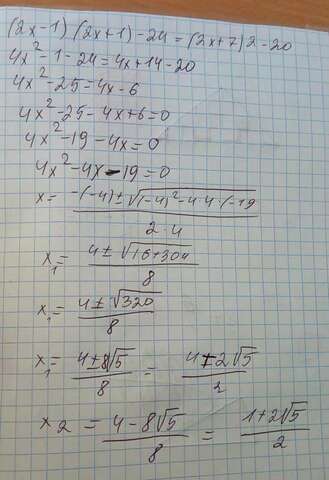 (2x-1)(2x+1)-24=(2x+7)2-20
4x²-1-24=4x+14-20
4x²-25-4x-6
4x²-25-4x+6=0
4x²-19-4x=0
4x²-4x-19=0
x= -(-4)±√(-4)²-4·4·(-19 / 2·4
x₁= 4±√16+304 / 8
x₁= 4±√320 / 8
x₁= 4±8√5 / 8 = 4±2√5 / 2
x2 = 4-8√5 / 8 = 1+2√5 / 2